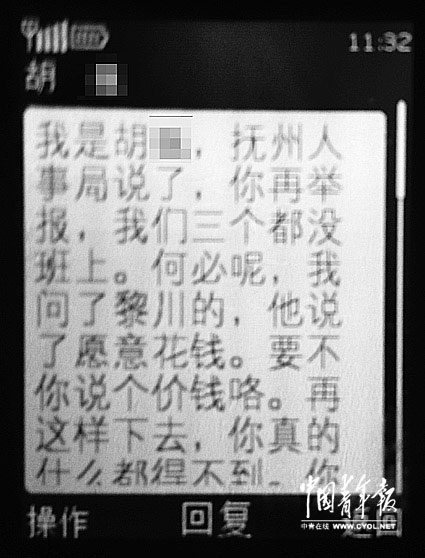 11:32
胡
我是胡，抚州人
事局说了，你再举
报，我们三个都没
班上。何必呢，我
问了黎川的，他说
了愿意花钱。要不
你说个价钱咯。再
这样下去，你真的
什么都得不到。你
中国青年报
中青在线 WWW.CYOL.NET
操作 回复 返回